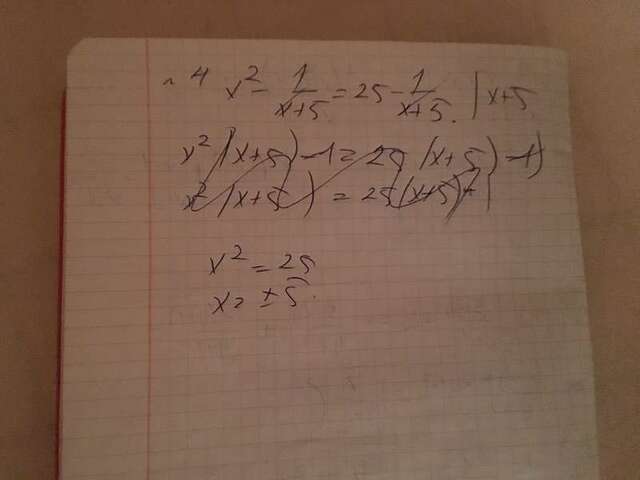 ~ 4 x² - 1/(x+5) = 25 - 1/(x+5). | x+5
x² (x+5) - 1 = 25 (x+5) - 1)
x² (x+5) = 25 (x+5)
x² = 25
x = ± 5.